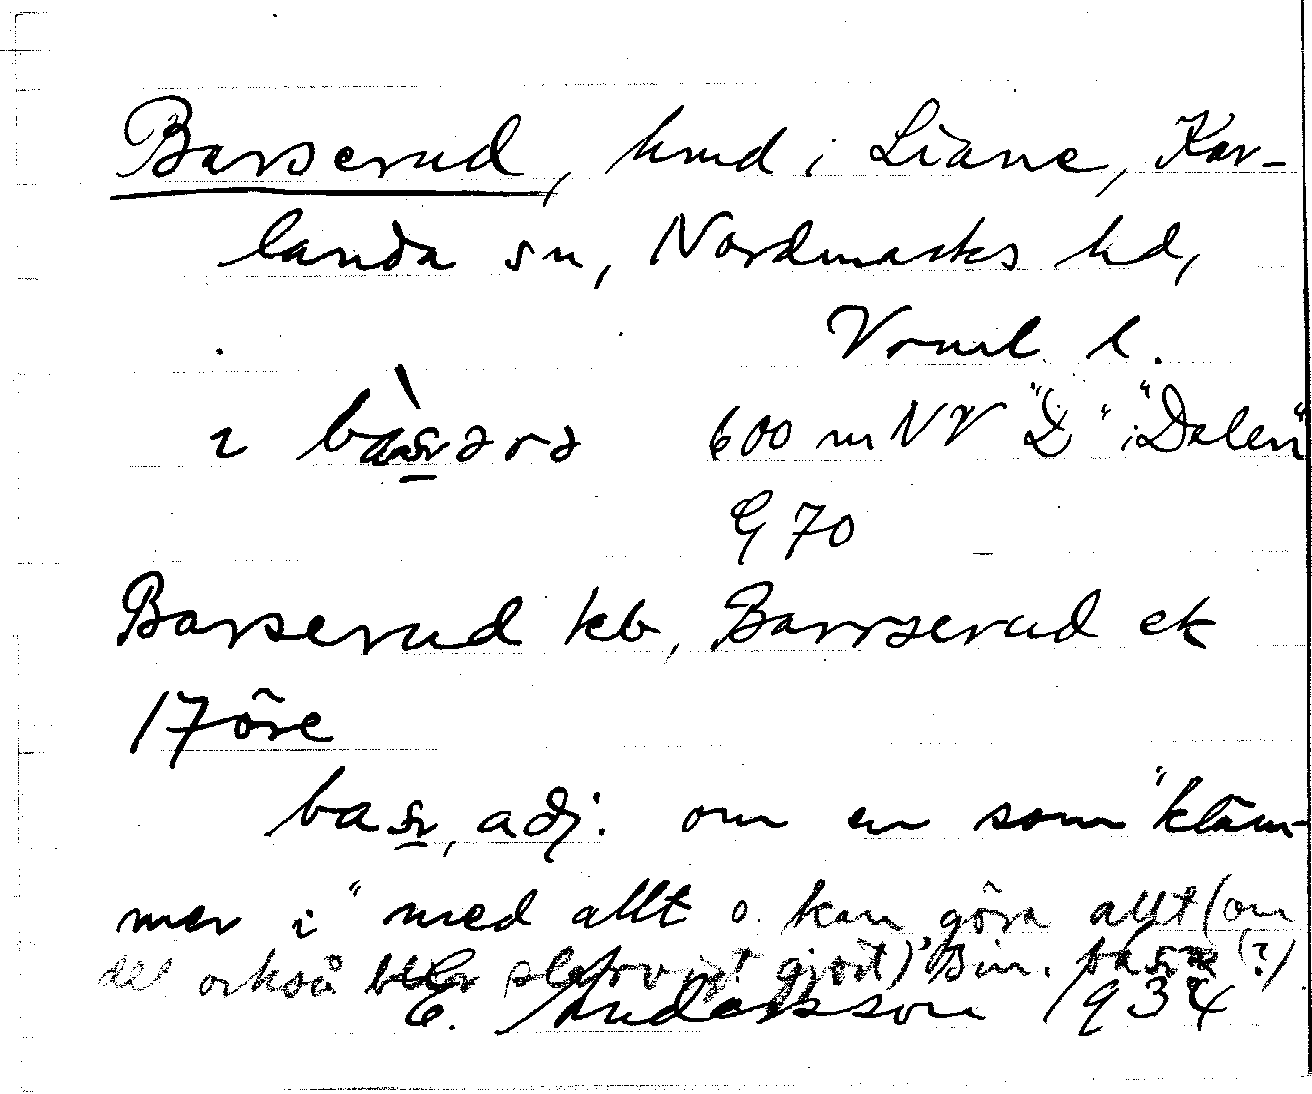 Barserud, hmd i Liane, Kar-
landa sn, Nordmarks hd,
Vrml. l.
i 600 m NV "D" i "Dalen"
G 70
Barserud kb, Barrserud ek
17öre
adj. om en som "kläm-
mer i" med allt o. kan göra allt (om
det också blir slarvigt gjort) (?)
E. Andersson 1934